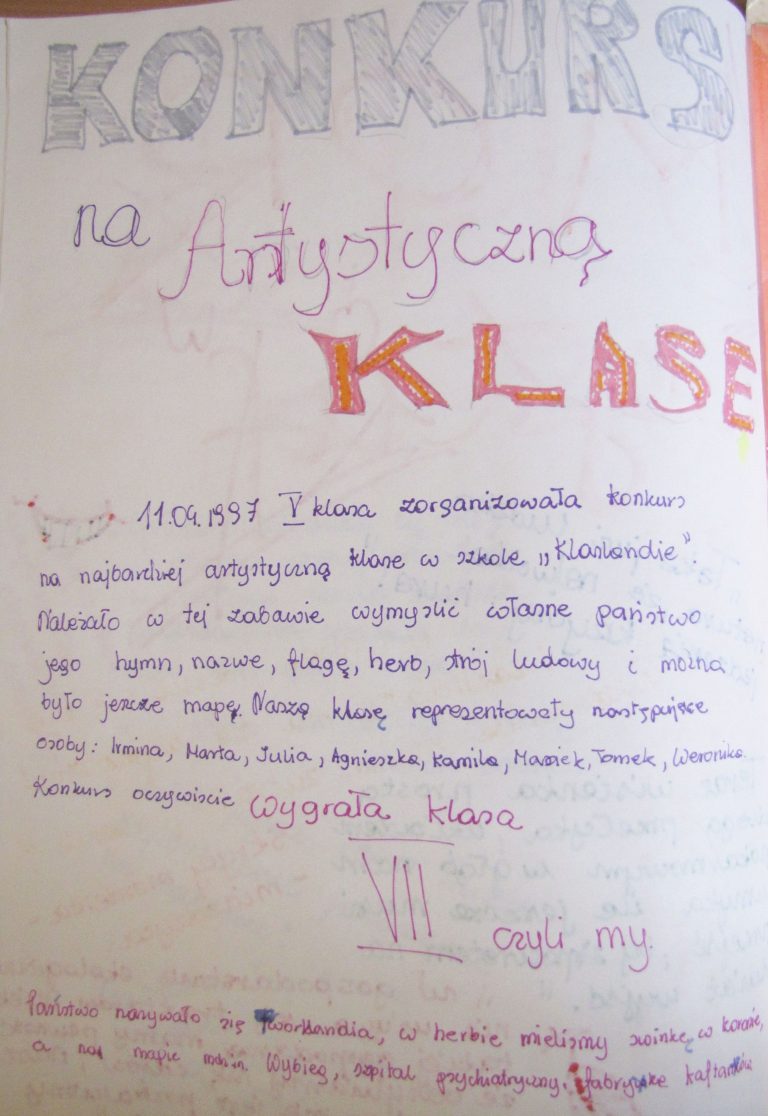 KONKURS
na Artystyczną
KLASĘ
11.04.1997 V klasa zorganizowała konkurs
na najbardziej artystyczną klasę w szkole „Klaslandie”
Należało w tej zabawie wymyslić własne państwo
jego hymn, nazwe, flagę, herb, strój ludowy i można
było jeszcze mapę. Naszą klasę reprezentowały następujące
osoby: Irmina, Marta, Julia, Agnieszka, Kamila, Maciek, Tomek, Weronika.
Konkurs oczywiscie wygrała klasa
VII
czyli my.
Państwo nazywało się Tworklandia, w herbie mielismy swinkę w koronie,
a na mapie m.in. Wybieg, szpital psychiatryczny, fabrykę kaftanów